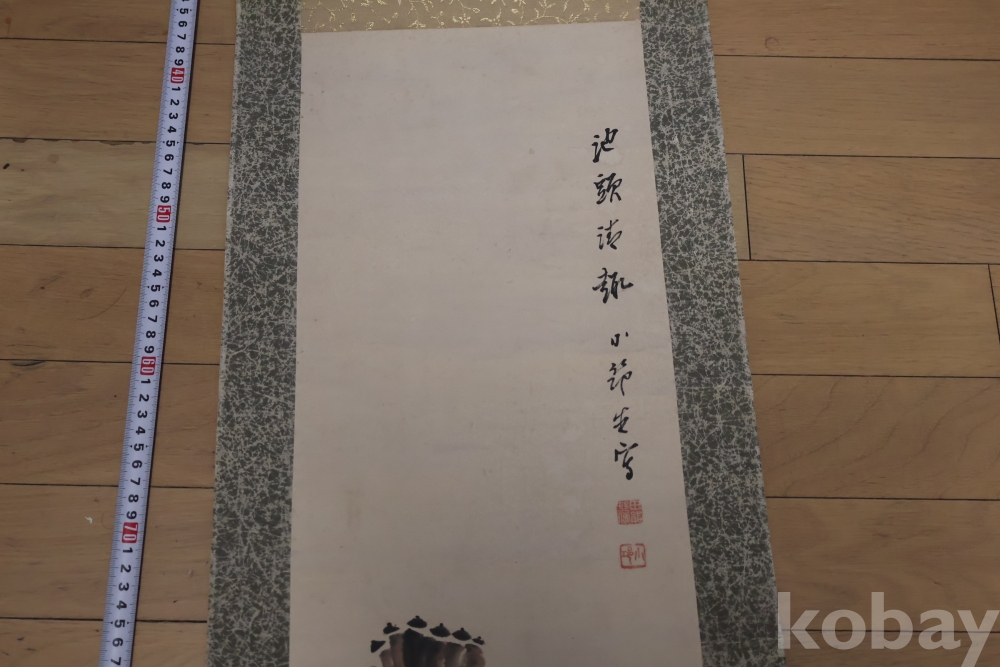 池頭清趣 小節生寫
5
6
7
8
9
40
1
2
3
4
5
6
7
8
9
50
1
2
3
4
5
6
7
8
9
60
1
2
3
4
5
6
7
8
9
70
1
2
3
4
5
6
7
kobay